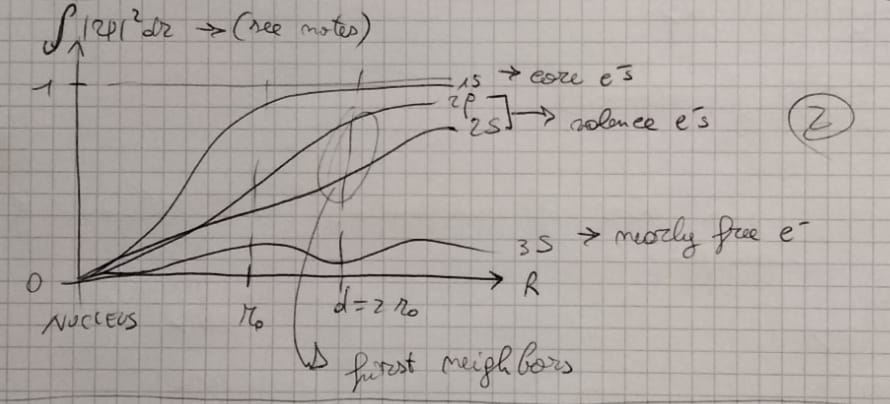 ∫|ψ|²dr → (see notes)
1
1S → core e⁻s
2p
2S → valence e⁻s
2
3S → nearly free e⁻
0
R
NUCLEUS
r₀
d = 2 r₀
first neighbors